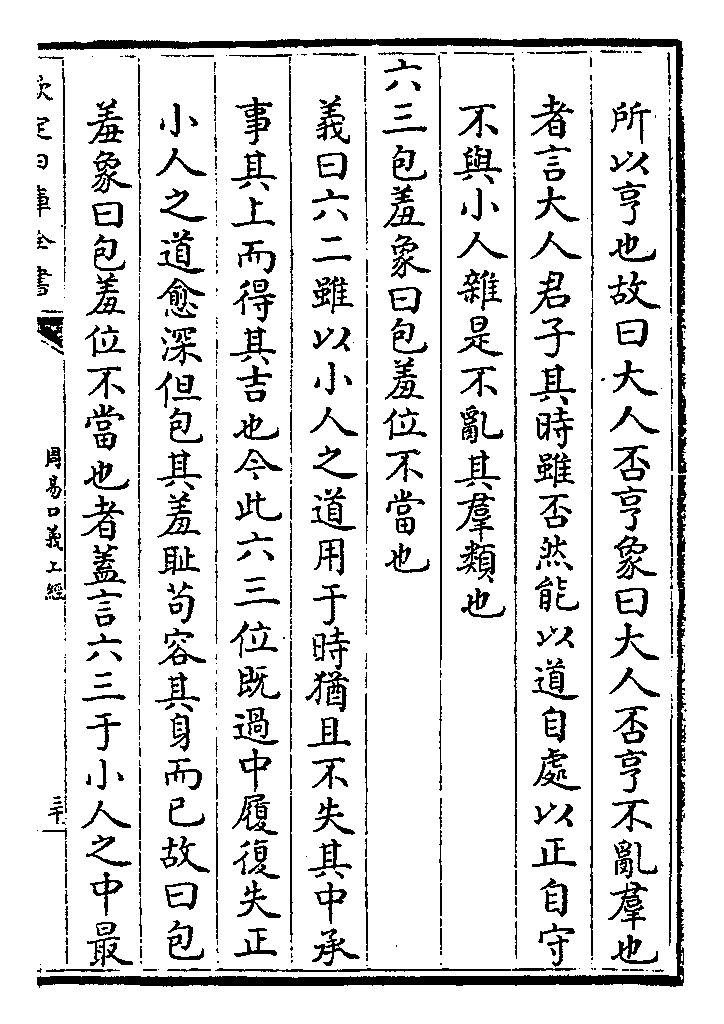 所以亨也故曰大人否亨象曰大人否亨不亂羣也
者言大人君子其時雖否然能以道自處以正自守
不與小人雜是不亂其羣類也
六三包羞象曰包羞位不當也
義曰六二雖以小人之道用于時猶且不失其中承
事其上而得其吉也今此六三位既過中履復失正
小人之道愈深但包其羞耻苟容其身而已故曰包
羞象曰包羞位不當也者蓋言六三于小人之中最
欽定四庫全書
周易口義上經